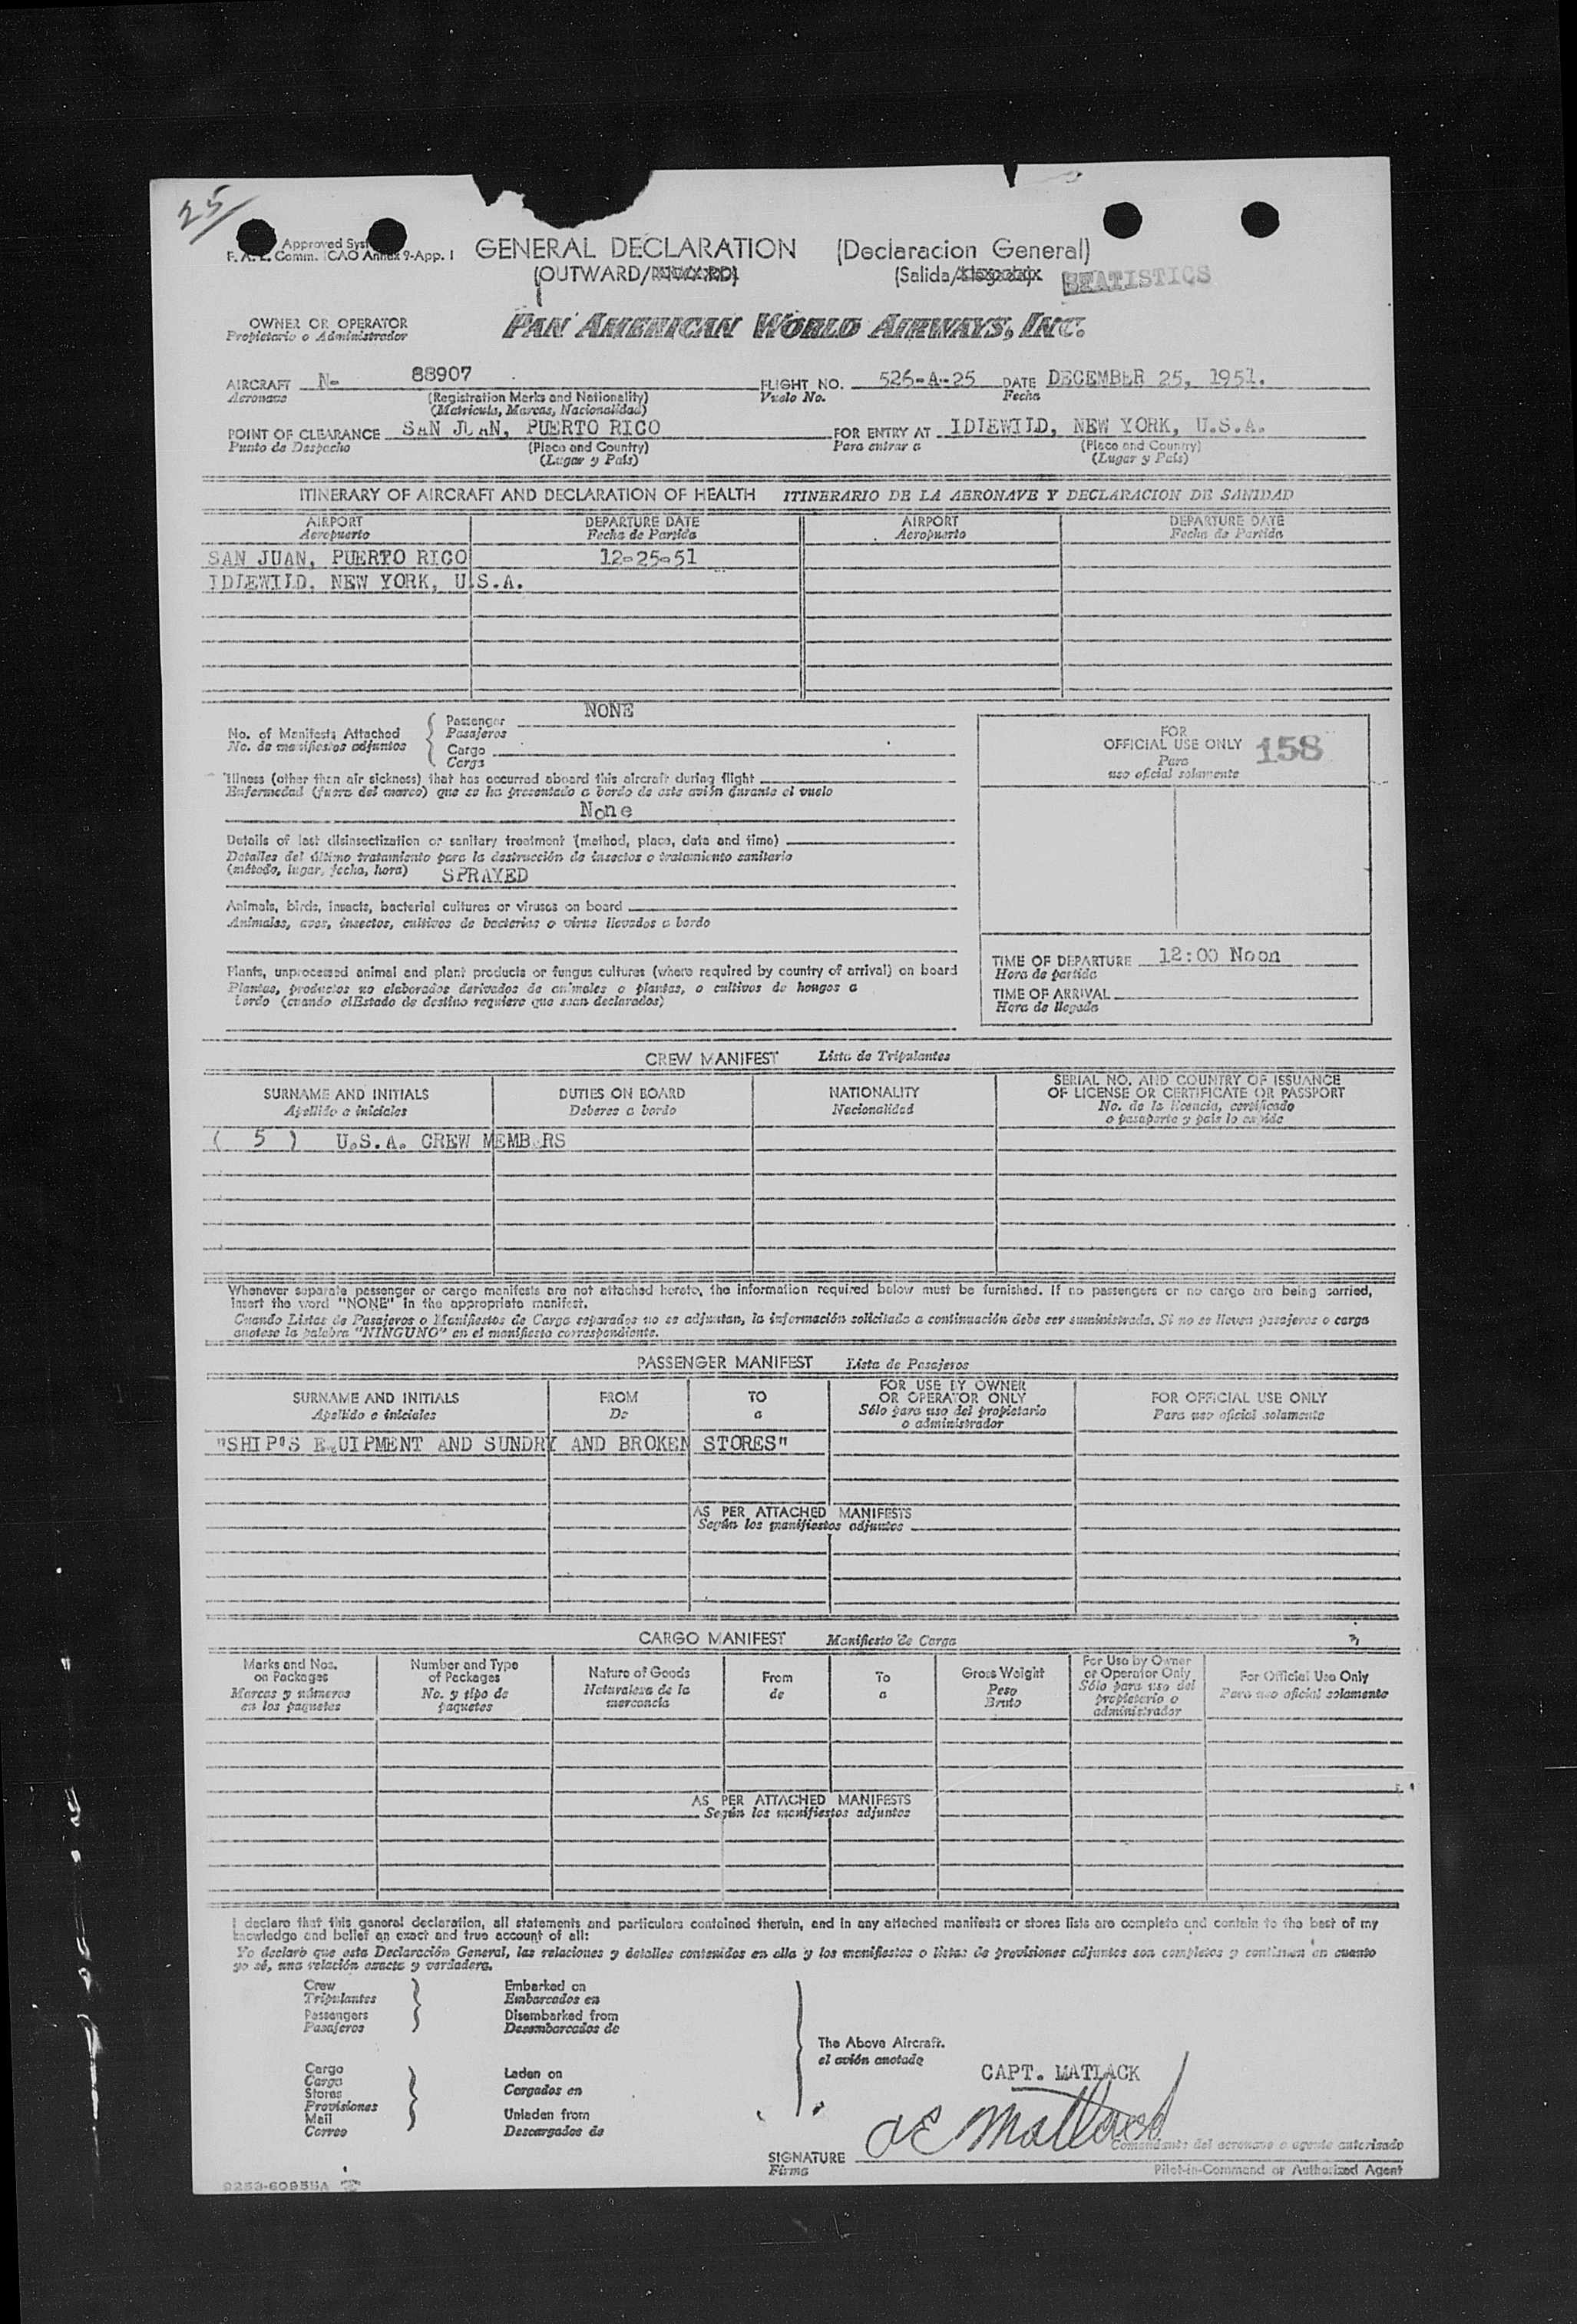 25
Approved
F. A. L. Comm. ICAO Annex 9-App. I
GENERAL DECLARATION (Declaracion General)
(OUTWARD/ (Salida/
STATISTICS
OWNER OR OPERATOR
Propietario o Administrador
PAN AMERICAN WORLD AIRWAYS, INC.
AIRCRAFT N- 88907 FLIGHT NO. 526-A-25 DATE DECEMBER 25, 1951.
Aeronave (Registration Marks and Nationality) Vuelo No. Fecha
(Matricula, Marcas, Nacionalidad)
POINT OF CLEARANCE SAN JUAN, PUERTO RICO FOR ENTRY AT IDLEWILD, NEW YORK, U.S.A.
Punto de Despacho (Place and Country) Para entrar a (Place and Country)
(Lugar y País) (Lugar y País)
ITINERARY OF AIRCRAFT AND DECLARATION OF HEALTH ITINERARIO DE LA AERONAVE Y DECLARACION DE SANIDAD
AIRPORT DEPARTURE DATE AIRPORT DEPARTURE DATE
Aeropuerto Fecha de Partida Aeropuerto Fecha de Partida
SAN JUAN, PUERTO RICO 12-25-51
IDLEWILD, NEW YORK, U.S.A.
No. of Manifests Attached
No. de manifiestos adjuntos
Passenger NONE
Pasajeros
Cargo
Carga
Illness (other than air sickness) that has occurred aboard this aircraft during flight
Enfermedad (fuera del mareo) que se ha presentado a bordo de este avión durante el vuelo
None
Details of last disinsectization or sanitary treatment (method, place, date and time)
Detalles del último tratamiento para la destrucción de insectos o tratamiento sanitario
(método, lugar, fecha, hora) SPRAYED
Animals, birds, insects, bacterial cultures or viruses on board
Animales, aves, insectos, cultivos de bacterias o virus llevados a bordo
Plants, unprocessed animal and plant products or fungus cultures (where required by country of arrival) on board
Plantas, productos no elaborados derivados de animales o plantas, o cultivos de hongos a
bordo (cuando elEstado de destino requiere que sean declarados)
FOR
OFFICIAL USE ONLY 158
Para
uso oficial solamente
TIME OF DEPARTURE 12:00 Noon
Hora de partida
TIME OF ARRIVAL
Hora de llegada
CREW MANIFEST Lista de Tripulantes
SURNAME AND INITIALS DUTIES ON BOARD NATIONALITY SERIAL NO. AND COUNTRY OF ISSUANCE
OF LICENSE OR CERTIFICATE OR PASSPORT
Apellido e iniciales Deberes a bordo Nacionalidad No. de la licencia, certificado
o pasaporte y país lo expide
( 5 ) U.S.A. CREW MEMBERS
Whenever separate passenger or cargo manifests are not attached hereto, the information required below must be furnished. If no passengers or no cargo are being carried,
insert the word "NONE" in the appropriate manifest.
Cuando Listas de Pasajeros o Manifiestos de Carga separados no se adjuntan, la información solicitada a continuación debe ser suministrada. Si no se llevan pasajeros o carga
anotese la palabra "NINGUNO" en el manifiesto correspondiente.
PASSENGER MANIFEST Lista de Pasajeros
SURNAME AND INITIALS FROM TO FOR USE BY OWNER FOR OFFICIAL USE ONLY
OR OPERATOR ONLY
Apellido e iniciales De a Sólo para uso del propietario Para uso oficial solamente
o administrador
"SHIP'S EQUIPMENT AND SUNDRY AND BROKEN STORES"
AS PER ATTACHED MANIFESTS
Según los manifiestos adjuntos
CARGO MANIFEST Manifiesto de Carga
Marks and Nos. Number and Type Nature of Goods From To Gross Weight For Use by Owner For Official Use Only
on Packages of Packages or Operator Only
Marcas y números No. y tipo de Naturaleza de la de a Peso Sólo para uso del Para uso oficial solamente
en los paquetes paquetes mercancia Bruto propietario o
administrador
AS PER ATTACHED MANIFESTS
Según los manifiestos adjuntos
I declare that this general declaration, all statements and particulars contained therein, and in any attached manifests or stores lists are complete and contain to the best of my
knowledge and belief an exact and true account of all:
Yo declaro que esta Declaración General, las relaciones y detalles contenidos en ella y los manifiestos o listas de provisiones adjuntos son completos y contienen en cuanto
yo sé, una relación exacta y verdadera.
Crew Embarked on
Tripulantes Embarcados en
Passengers Disembarked from
Pasajeros Desembarcados de
The Above Aircraft.
el avión anotado
Cargo Laden on
Carga Cargados en
Stores
Provisiones
Mail Unladen from
Correo Descargados de
CAPT. MATLACK
SIGNATURE
Firma
Comandante del aeronave o agente autorizado
Pilot-in-Command or Authorized Agent
9253-60955A